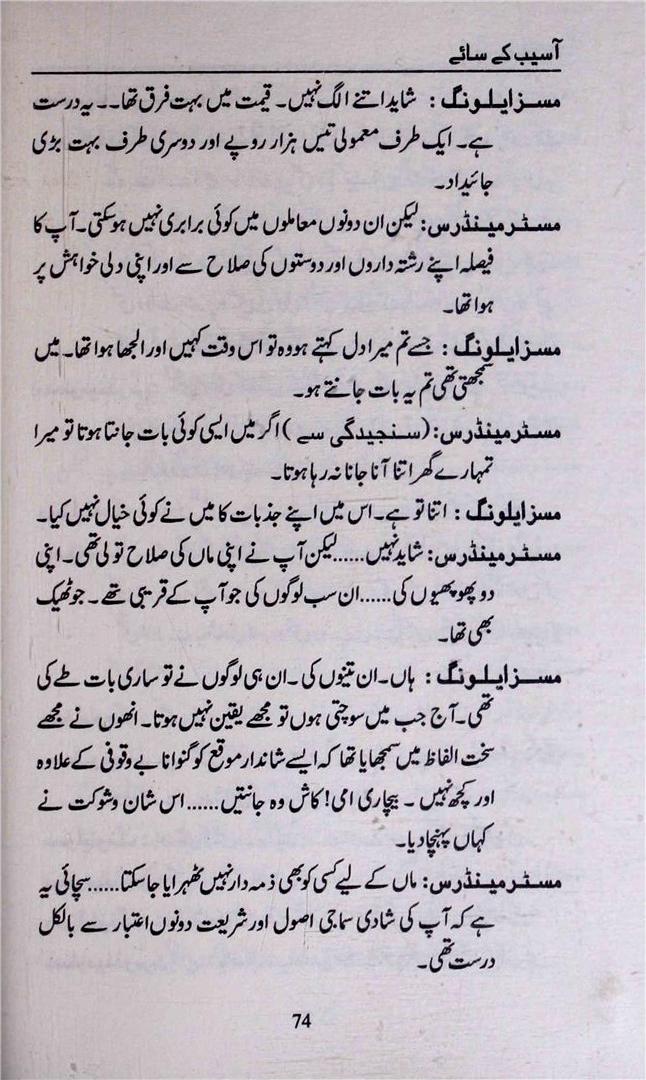 آسیب کے سائے
مسز ایلونگ : شاید اتنے الگ نہیں۔ قیمت میں بہت فرق تھا۔۔ یہ درست
ہے۔ ایک طرف معمولی تیس ہزار روپے اور دوسری طرف بہت بڑی
جائیداد۔
مسٹر مینڈرس: لیکن ان دونوں معاملوں میں کوئی برابری نہیں ہوسکتی۔ آپ کا
فیصلہ اپنے رشتہ داروں اور دوستوں کی صلاح سے اور اپنی دلی خواہش پر
ہوا تھا۔
مسز ایلونگ : جسے تم میرا دل کہتے ہو وہ تو اس وقت کہیں اور الجھا ہوا تھا۔ میں
سمجھتی تھی تم یہ بات جانتے ہو۔
مسٹر مینڈرس: (سنجیدگی سے) اگر میں ایسی کوئی بات جانتا ہوتا تو میرا
تمہارے گھر اتنا آنا جانا نہ رہا ہوتا۔
مسز ایلونگ : اتنا تو ہے۔ اس میں اپنے جذبات کا میں نے کوئی خیال نہیں کیا۔
مسٹر مینڈرس: شاید نہیں......لیکن آپ نے اپنی ماں کی صلاح تو لی تھی۔ اپنی
دو پھوپھیوں کی......ان سب لوگوں کی جو آپ کے قریبی تھے۔ جو ٹھیک
بھی تھا۔
مسز ایلونگ : ہاں۔ ان تینوں کی۔ ان ہی لوگوں نے تو ساری بات طے کی
تھی۔ آج جب میں سوچتی ہوں تو مجھے یقین نہیں ہوتا۔ انھوں نے مجھے
سخت الفاظ میں سمجھایا تھا کہ ایسے شاندار موقع کو گنوانا بے وقوفی کے علاوہ
اور کچھ نہیں۔ بیچاری امی! کاش وہ جانتیں......اس شان و شوکت نے
کہاں پہنچا دیا۔
مسٹر مینڈرس: ماں کے لیے کسی کو بھی ذمہ دار نہیں ٹھہرایا جاسکتا......سچائی یہ
ہے کہ آپ کی شادی سماجی اصول اور شریعت دونوں اعتبار سے بالکل
درست تھی۔
74